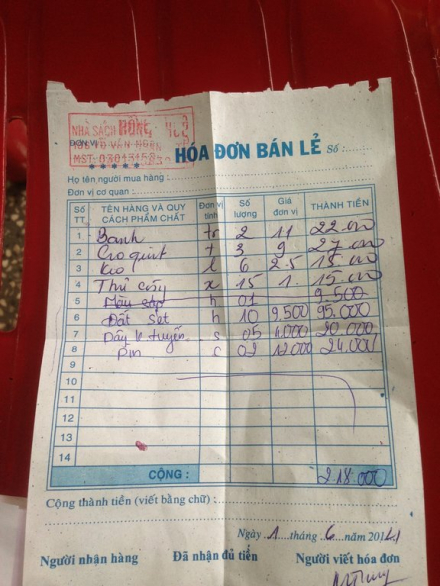 NHÀ SÁCH HỒNG
ĐƠN VỊ
HÓA ĐƠN BÁN LẺ Số :
Họ tên người mua hàng :
Đơn vị cơ quan :
Số TT TÊN HÀNG VÀ QUY CÁCH PHẨM CHẤT Đơn vị tính Số lượng Giá đơn vị THÀNH TIỀN
1 Banh tr 2 11 22.000
2 Croquet t 3 9 27.000
3 Keo l 6 2.5 15.000
4 Thú x 15 1. 15.000
5 Màu h 01 9.500
6 Đất Sét h 10 9,500 95.000
7 Dây s 05 4.000 20.000
8 Pin c 02 12.000 24.000
9
10
11
12
13
14
CỘNG : 218.000
Cộng thành tiền (viết bằng chữ) :
Ngày 1 tháng 6 năm 201
Người nhận hàng Đã nhận đủ tiền Người viết hóa đơn